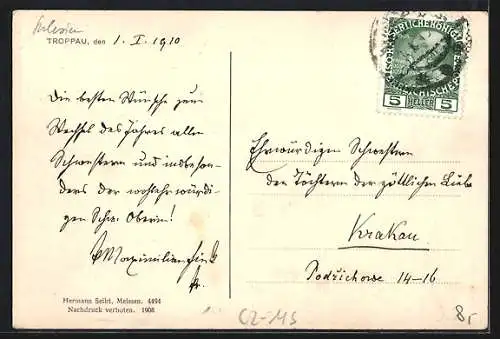 Schlesien
TROPPAU, den 1. I. 1910
Die besten Wünsche zum
Wechsel des Jahres allen
Schwestern und insbeson-
ders der wohlehrwürdi-
gen Schw. Oberin!
Maximilian
Hermann Seibt, Meissen. 4494
Nachdruck verboten. 1908
5 HELLER 5
Ehrwürdigen Schwestern
den Töchtern der göttlichen Liebe
Krakau
Podzichowe 14–16
CZ-MS
8,-